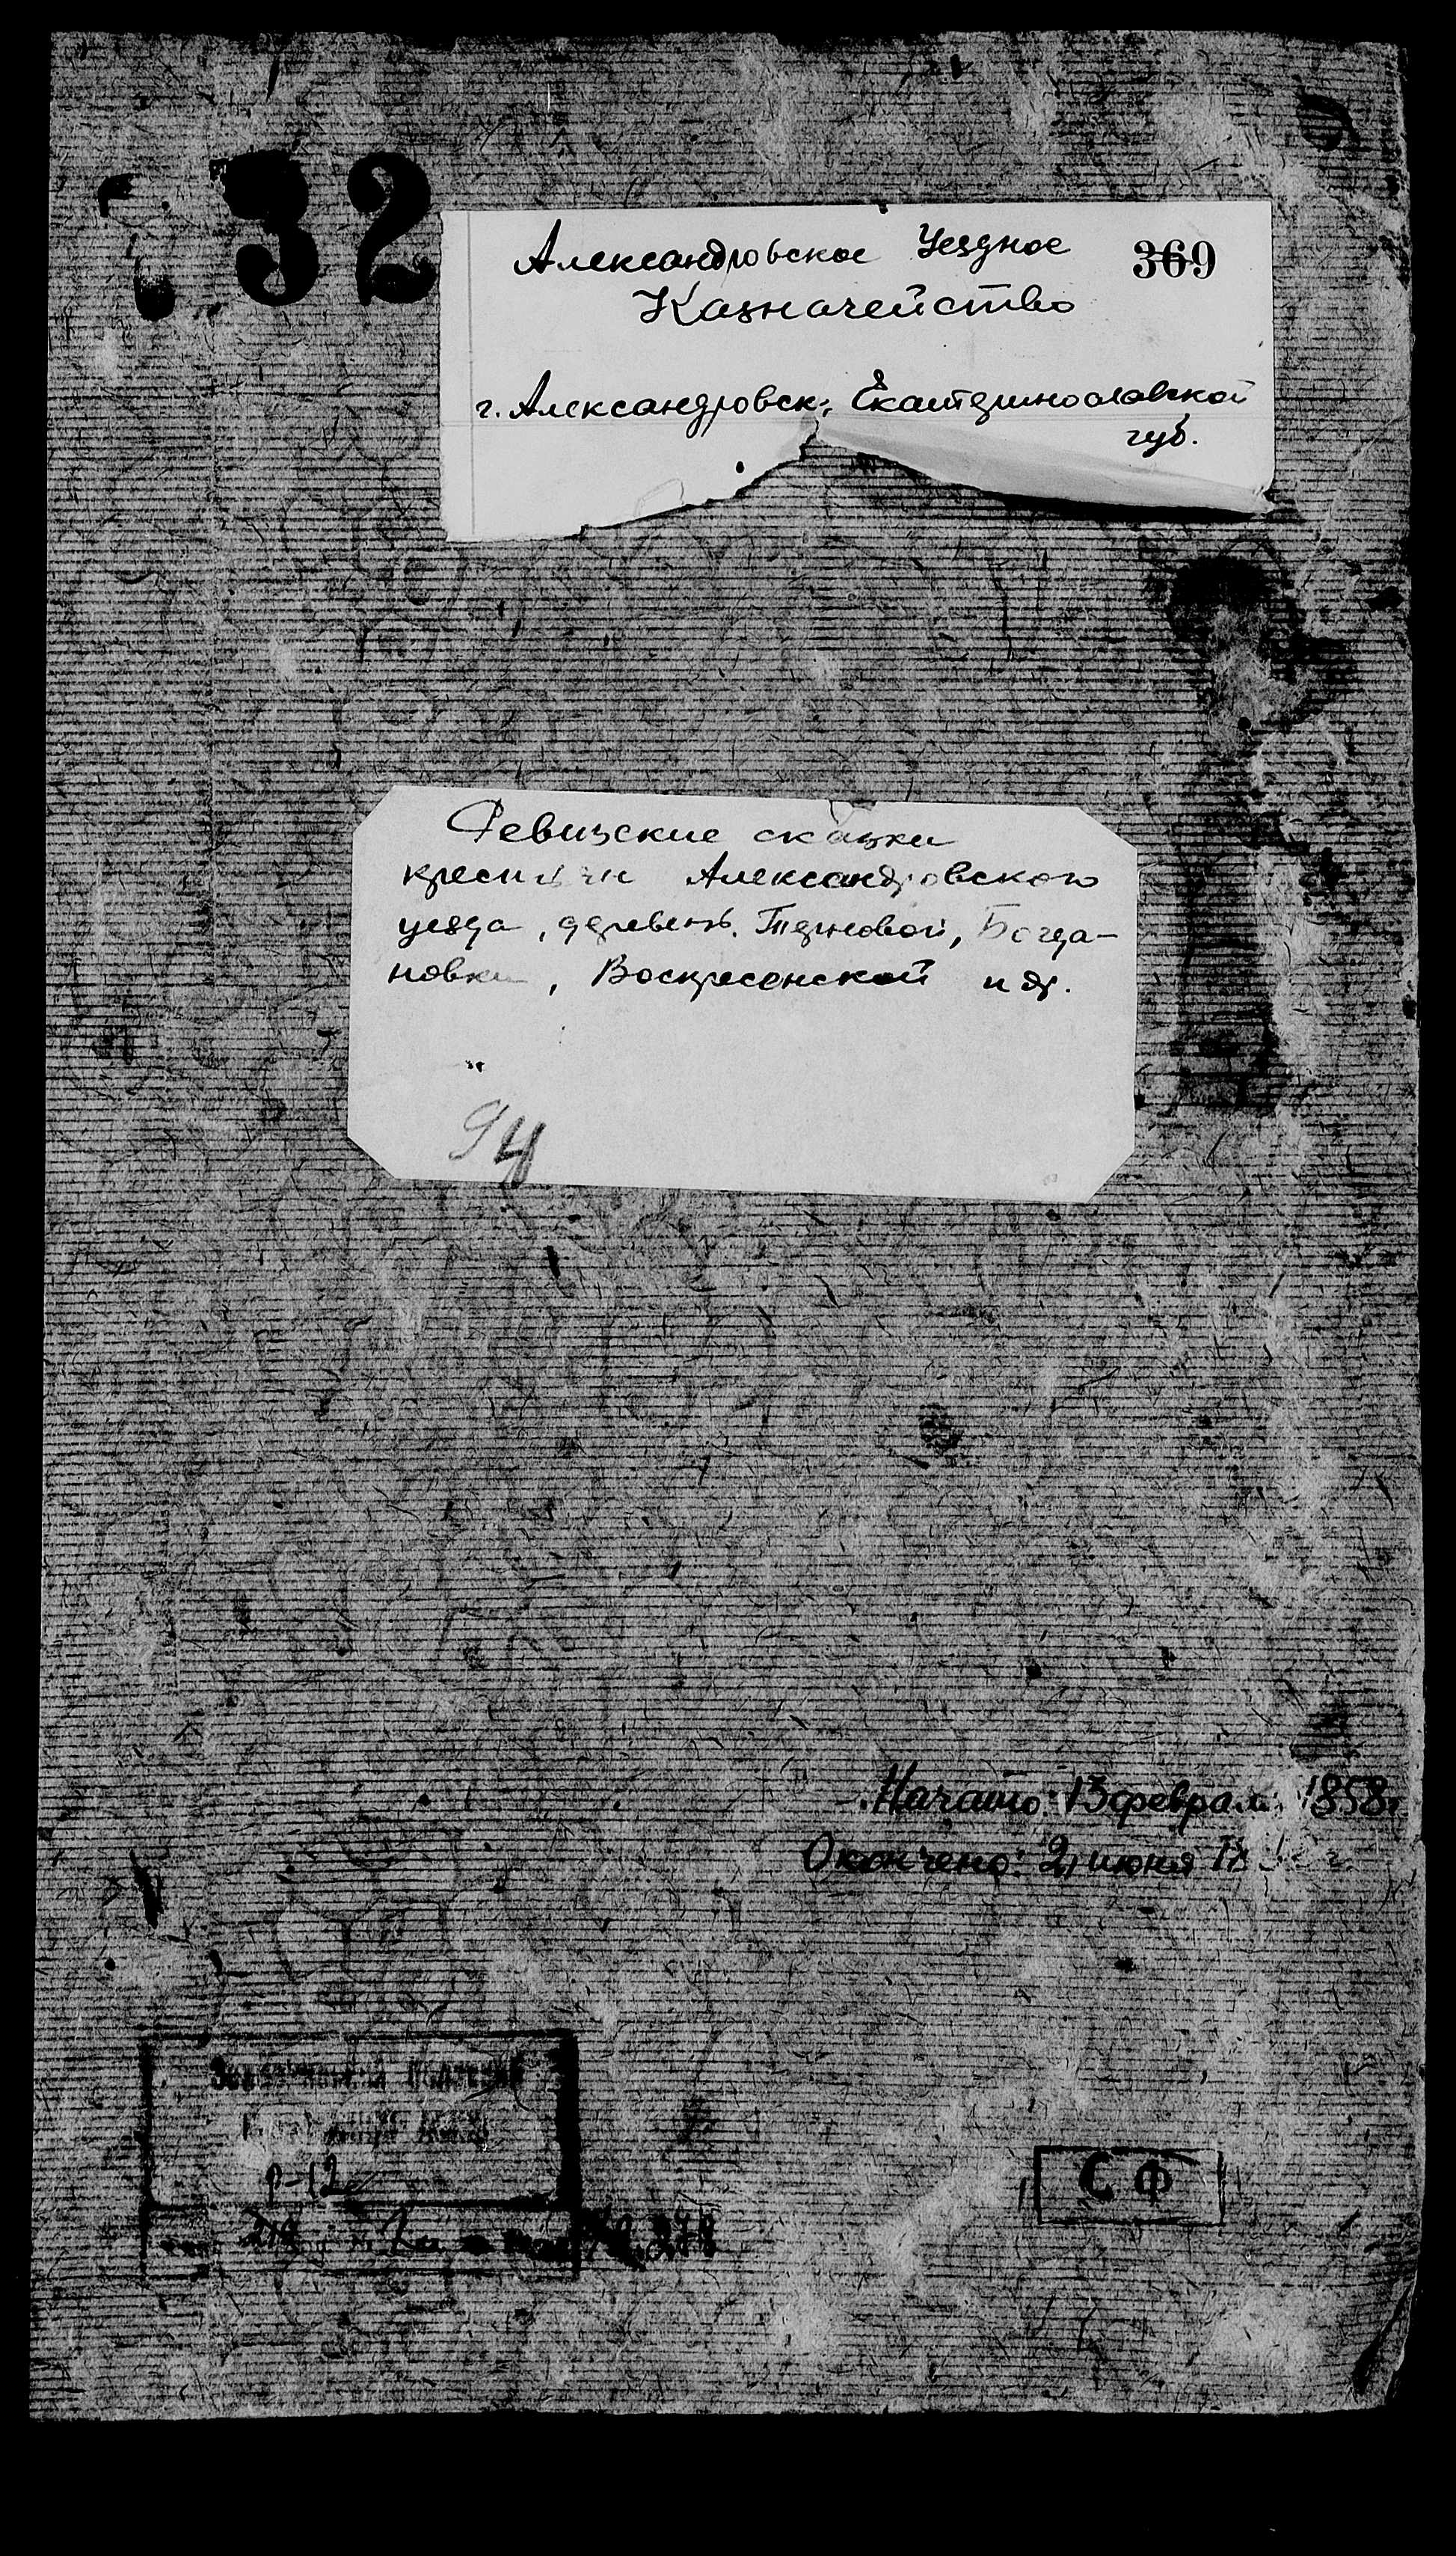 32
Александровское Уездное 369
Казначейство
г. Александровск, Екатеринославской
губ.
Ревизские сказки
крестьян Александровского
уезда, деревень Терновой, Богда-
новки, Воскресенской и др.
94
Начато: 13 февраля 1858 г.
Окончено: 21 июня
Р-12
СФ